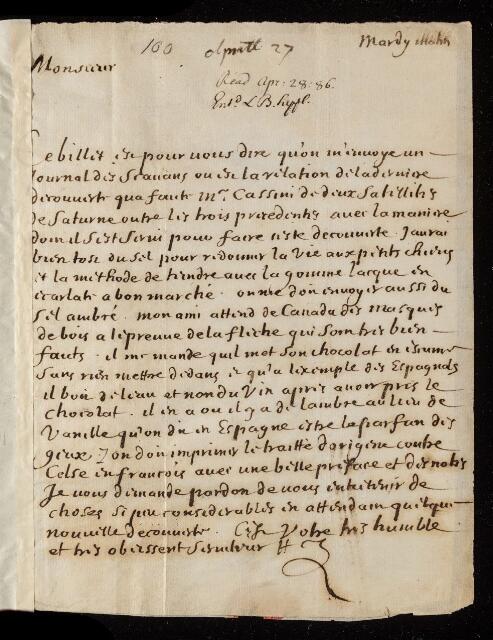 100 Aprill 27
Mardy matin
Monsieur
Read Apr: 28: 86.
Entd. L B. Suppl.
Ce billet est pour vous dire qu'on m'envoye un
Journal des Scavans ou est la rélation de la derniere
découverte qua faitte Mr. Cassini de deux Satillites
de Saturne outre les trois précédents avec la maniere
dont il s'est servi pour faire ceste découverte. J'aurai
bien tost du sel pour redonner la vie aux petits chiens
et la méthode de teindre avec la gomme lacque en
écarlate a bon marché. on me doit envoyer aussi du
sel ambré. mon ami attend de Canada des masques
de bois a lépreuve de la fléche qui sont tres bien
faicts. il me mande quil met son chocolat en escume
sans rien mettre dedans et qu'a l'exemple des Espagnols
il boit de leau et non du vin apres avoir pris le
chocolat. il en a ou il y a de l'ambre au lieu de
Vanille qu'on dit en Espagne estre le parfun des
gueux. on doit imprimer le traitté d'origéne contre
Celse en francois avec une belle préface et des notes
Je vous demande pardon de vous entretenir de
choses si peu considérables en attendant quelque
nouvelle découverte. C'est Votre tres humble
et tres obeissent serviteur